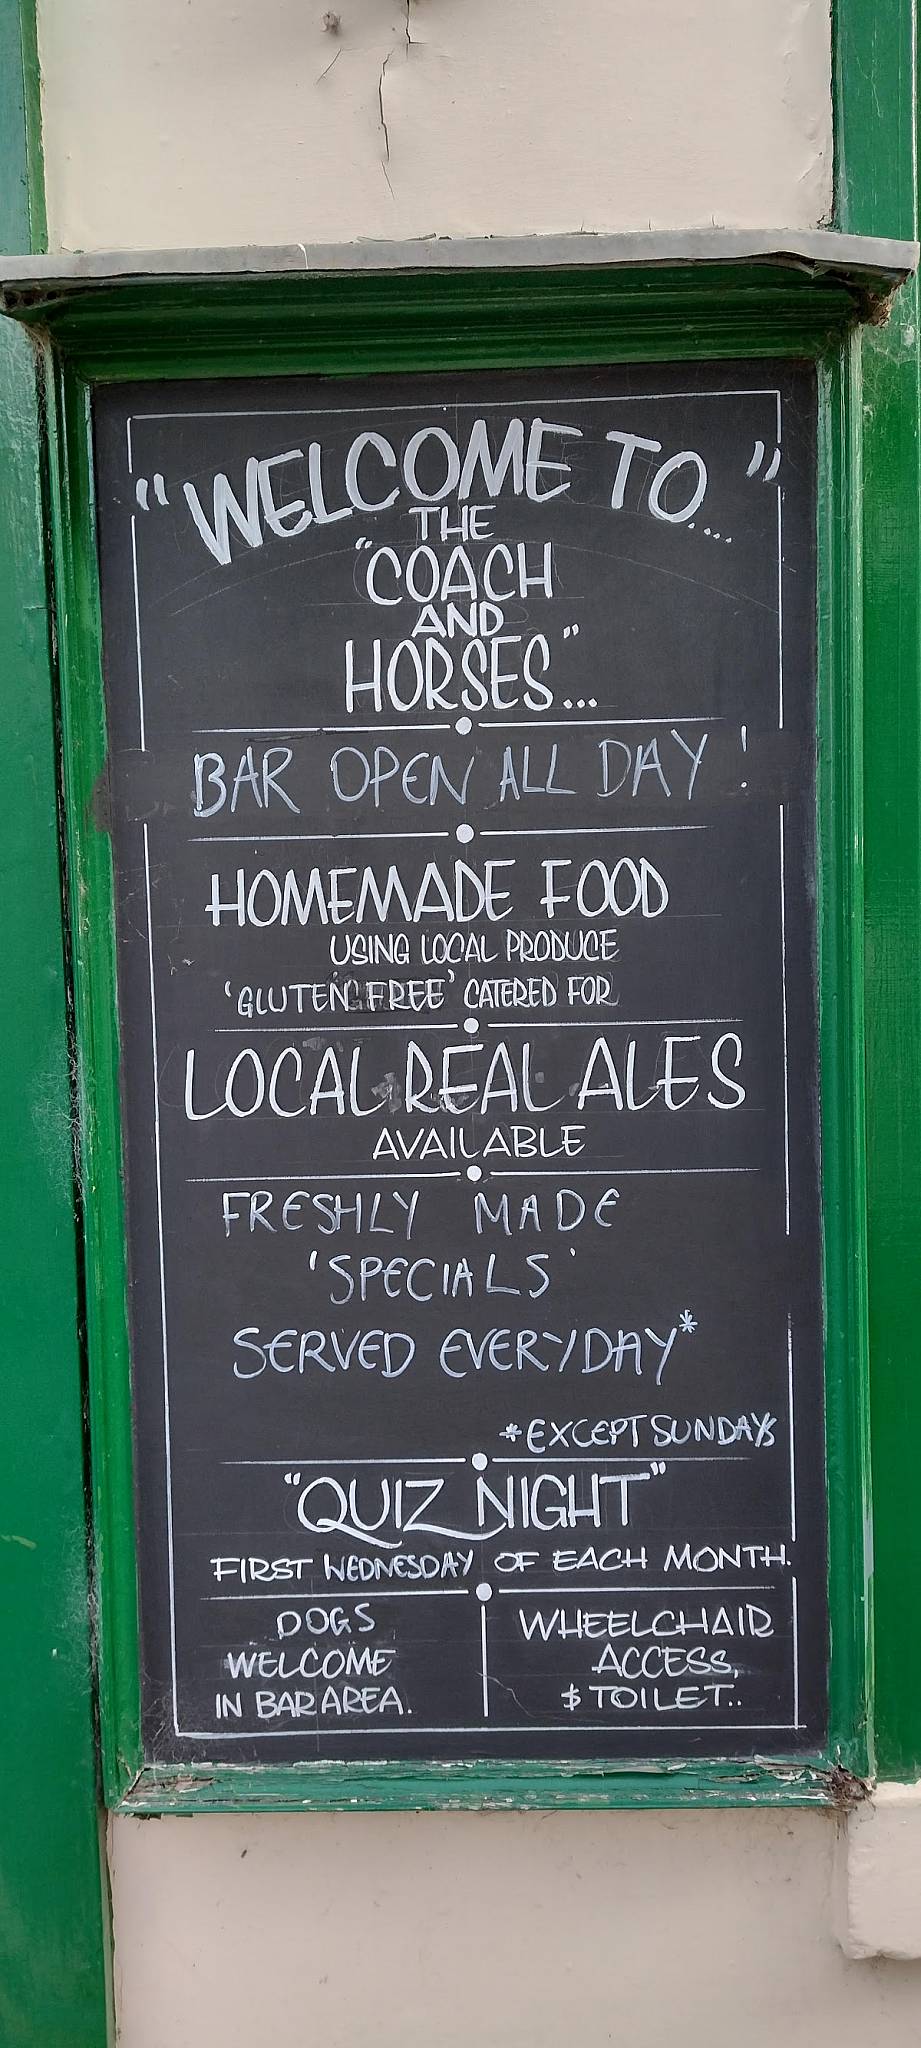 "WELCOME TO...."
THE
"COACH
AND
HORSES"...
BAR OPEN ALL DAY!
HOMEMADE FOOD
USING LOCAL PRODUCE
'GLUTEN FREE' CATERED FOR
LOCAL REAL ALES
AVAILABLE
FRESHLY MADE
'SPECIALS'
SERVED EVERYDAY*
*EXCEPT SUNDAYS
"QUIZ NIGHT"
FIRST WEDNESDAY OF EACH MONTH.
DOGS
WELCOME
IN BAR AREA.
WHEELCHAIR
ACCESS,
$ TOILET..